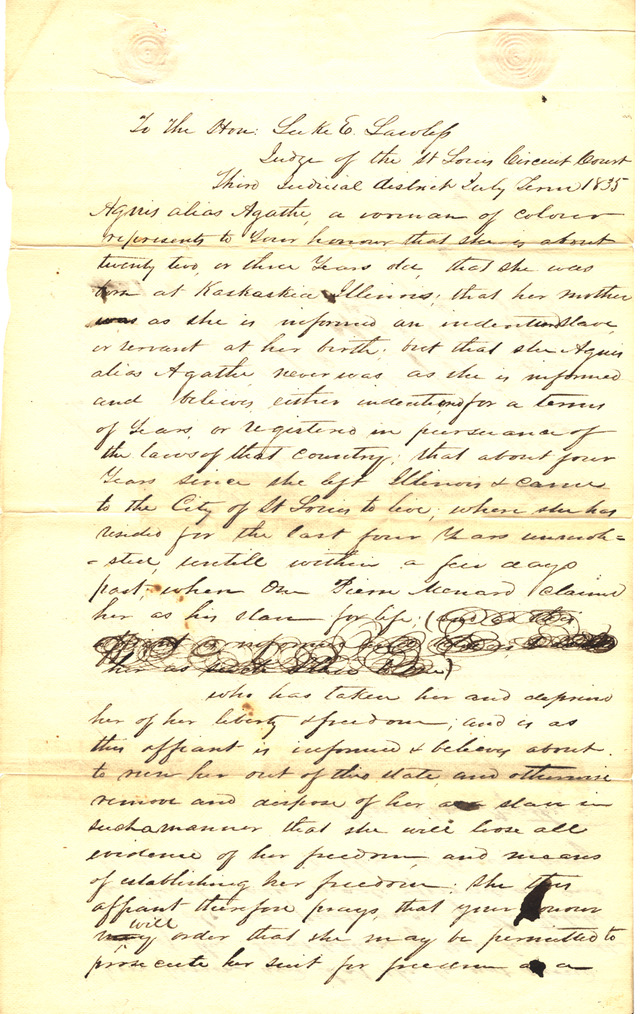 To the Hon: Luke E. Lawless
Judge of the St Louis Circuit Court
Third Judicial district July Term 1835
Agnis alias Agathe, a woman of colour
represents to Your honour that she is about
twenty two, or three Years old, that she was
born at Kaskaskia Illinois; that her mother
was as she is informed an indentured slave
or servant at her birth; but that she Agnis
alias Agathe never was as she is informed
and believes either indentured for a terms
of Years or registered in persuance of
the laws of that country; that about four
Years since she left Illinois & came
to the City of St Louis to live; where she has
resided for the last four Years unmole=
=sted, untill within a few days
past, when One Pierre Menard claims
her as his slave for life; (and as this
affiant is informed
her as such slave)
who has taken her and deprives
her of her liberty & freedom; and is as
this affiant is informed & believes about
to run her out of this state and otherwise
remove and dispose of her as a slave in
such a manner that she will loose all
evidence of her freedom and means
of establishing her freedom; She this
affiant therefore prays, that your honour
will
may order that she may be permitted to
prosecute her suit for freedom as a